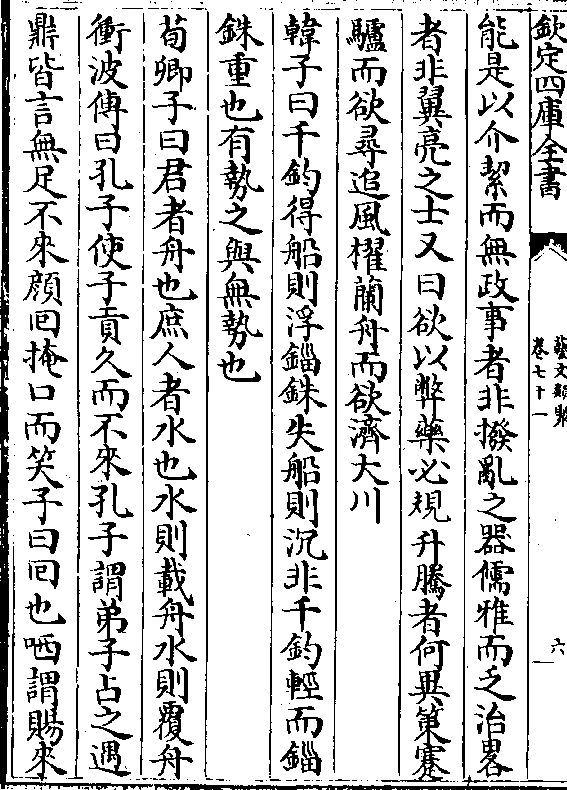 欽定四庫全書
藝文類聚
卷七十一
六
能是以介潔而無政事者非撥亂之器儒雅而乏治畧
者非翼亮之士又曰欲以弊藥必規升騰者何異策蹇
驢而欲尋追風櫂蘭舟而欲濟大川
韓子曰千鈞得船則浮錙銖失船則沉非千鈞輕而錙
銖重也有勢之與無勢也
荀卿子曰君者舟也庶人者水也水則載舟水則覆舟
衝波傳曰孔子使子貢久而不來孔子謂弟子占之遇
鼎皆言無足不來顔囘掩口而笑子曰囘也哂謂賜來